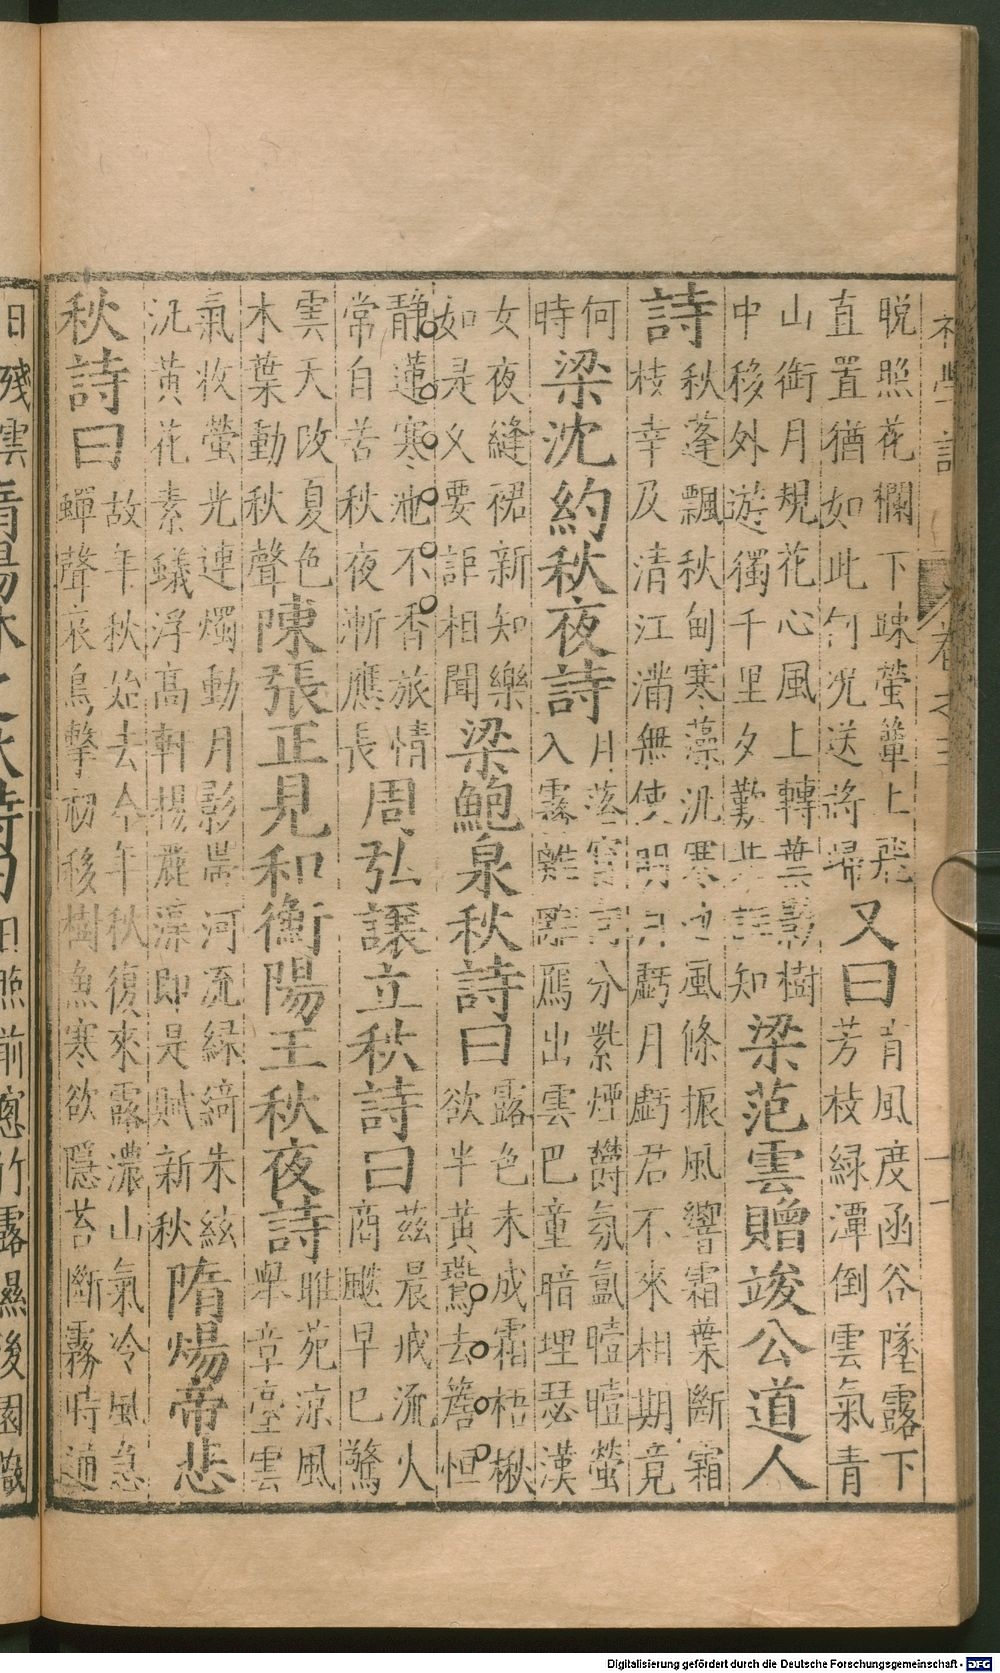 初學記
卷之三
十一
晚照花欄下踈螢簟上飛
直置猶如此何況送將歸
又曰
青風度函谷墜露下
芳枝綠潭倒雲氣青
山銜月規花心風上轉葉影樹
中移外遊獨千里夕歎共誰知
梁范雲贈竣公道人
詩
秋蓬飄秋甸寒藻汎寒池風條振風響霜葉斷霜
枝幸及清江滿無使明月虧月虧君不來相期竟
何
時
梁沈約秋夜詩
月落宵向分紫煙鬱氛氳曀曀螢
入霧離離鴈出雲巴童暗埋瑟漢
女夜縫裙新知樂
如是乂要詎相聞
梁鮑泉秋詩曰
露色未成霜梧楸
欲半黃鷰去簷恒
静蓮寒池不香旅情
常自苦秋夜漸應長
周弘讓立秋詩曰
茲晨戒流火
商飈早已驚
雲天改夏色
木葉動秋聲
陳張正見和衡陽王秋夜詩
睢苑涼風
舉章臺雲
氣收螢光連燭動月影帶河流綠綺朱絃
汎黃花素蟻浮高軒楊麗藻即是賦新秋
隋煬帝悲
秋詩曰
故年秋始去今年秋復來露濃山氣冷風急
蟬聲哀鳥擊初移樹魚寒欲隱苔斷霧時通
日殘雲
之秋詩曰
日照前窻竹露濕後園
Digitalisierung gefördert durch die Deutsche Forschungsgemeinschaft - DFG